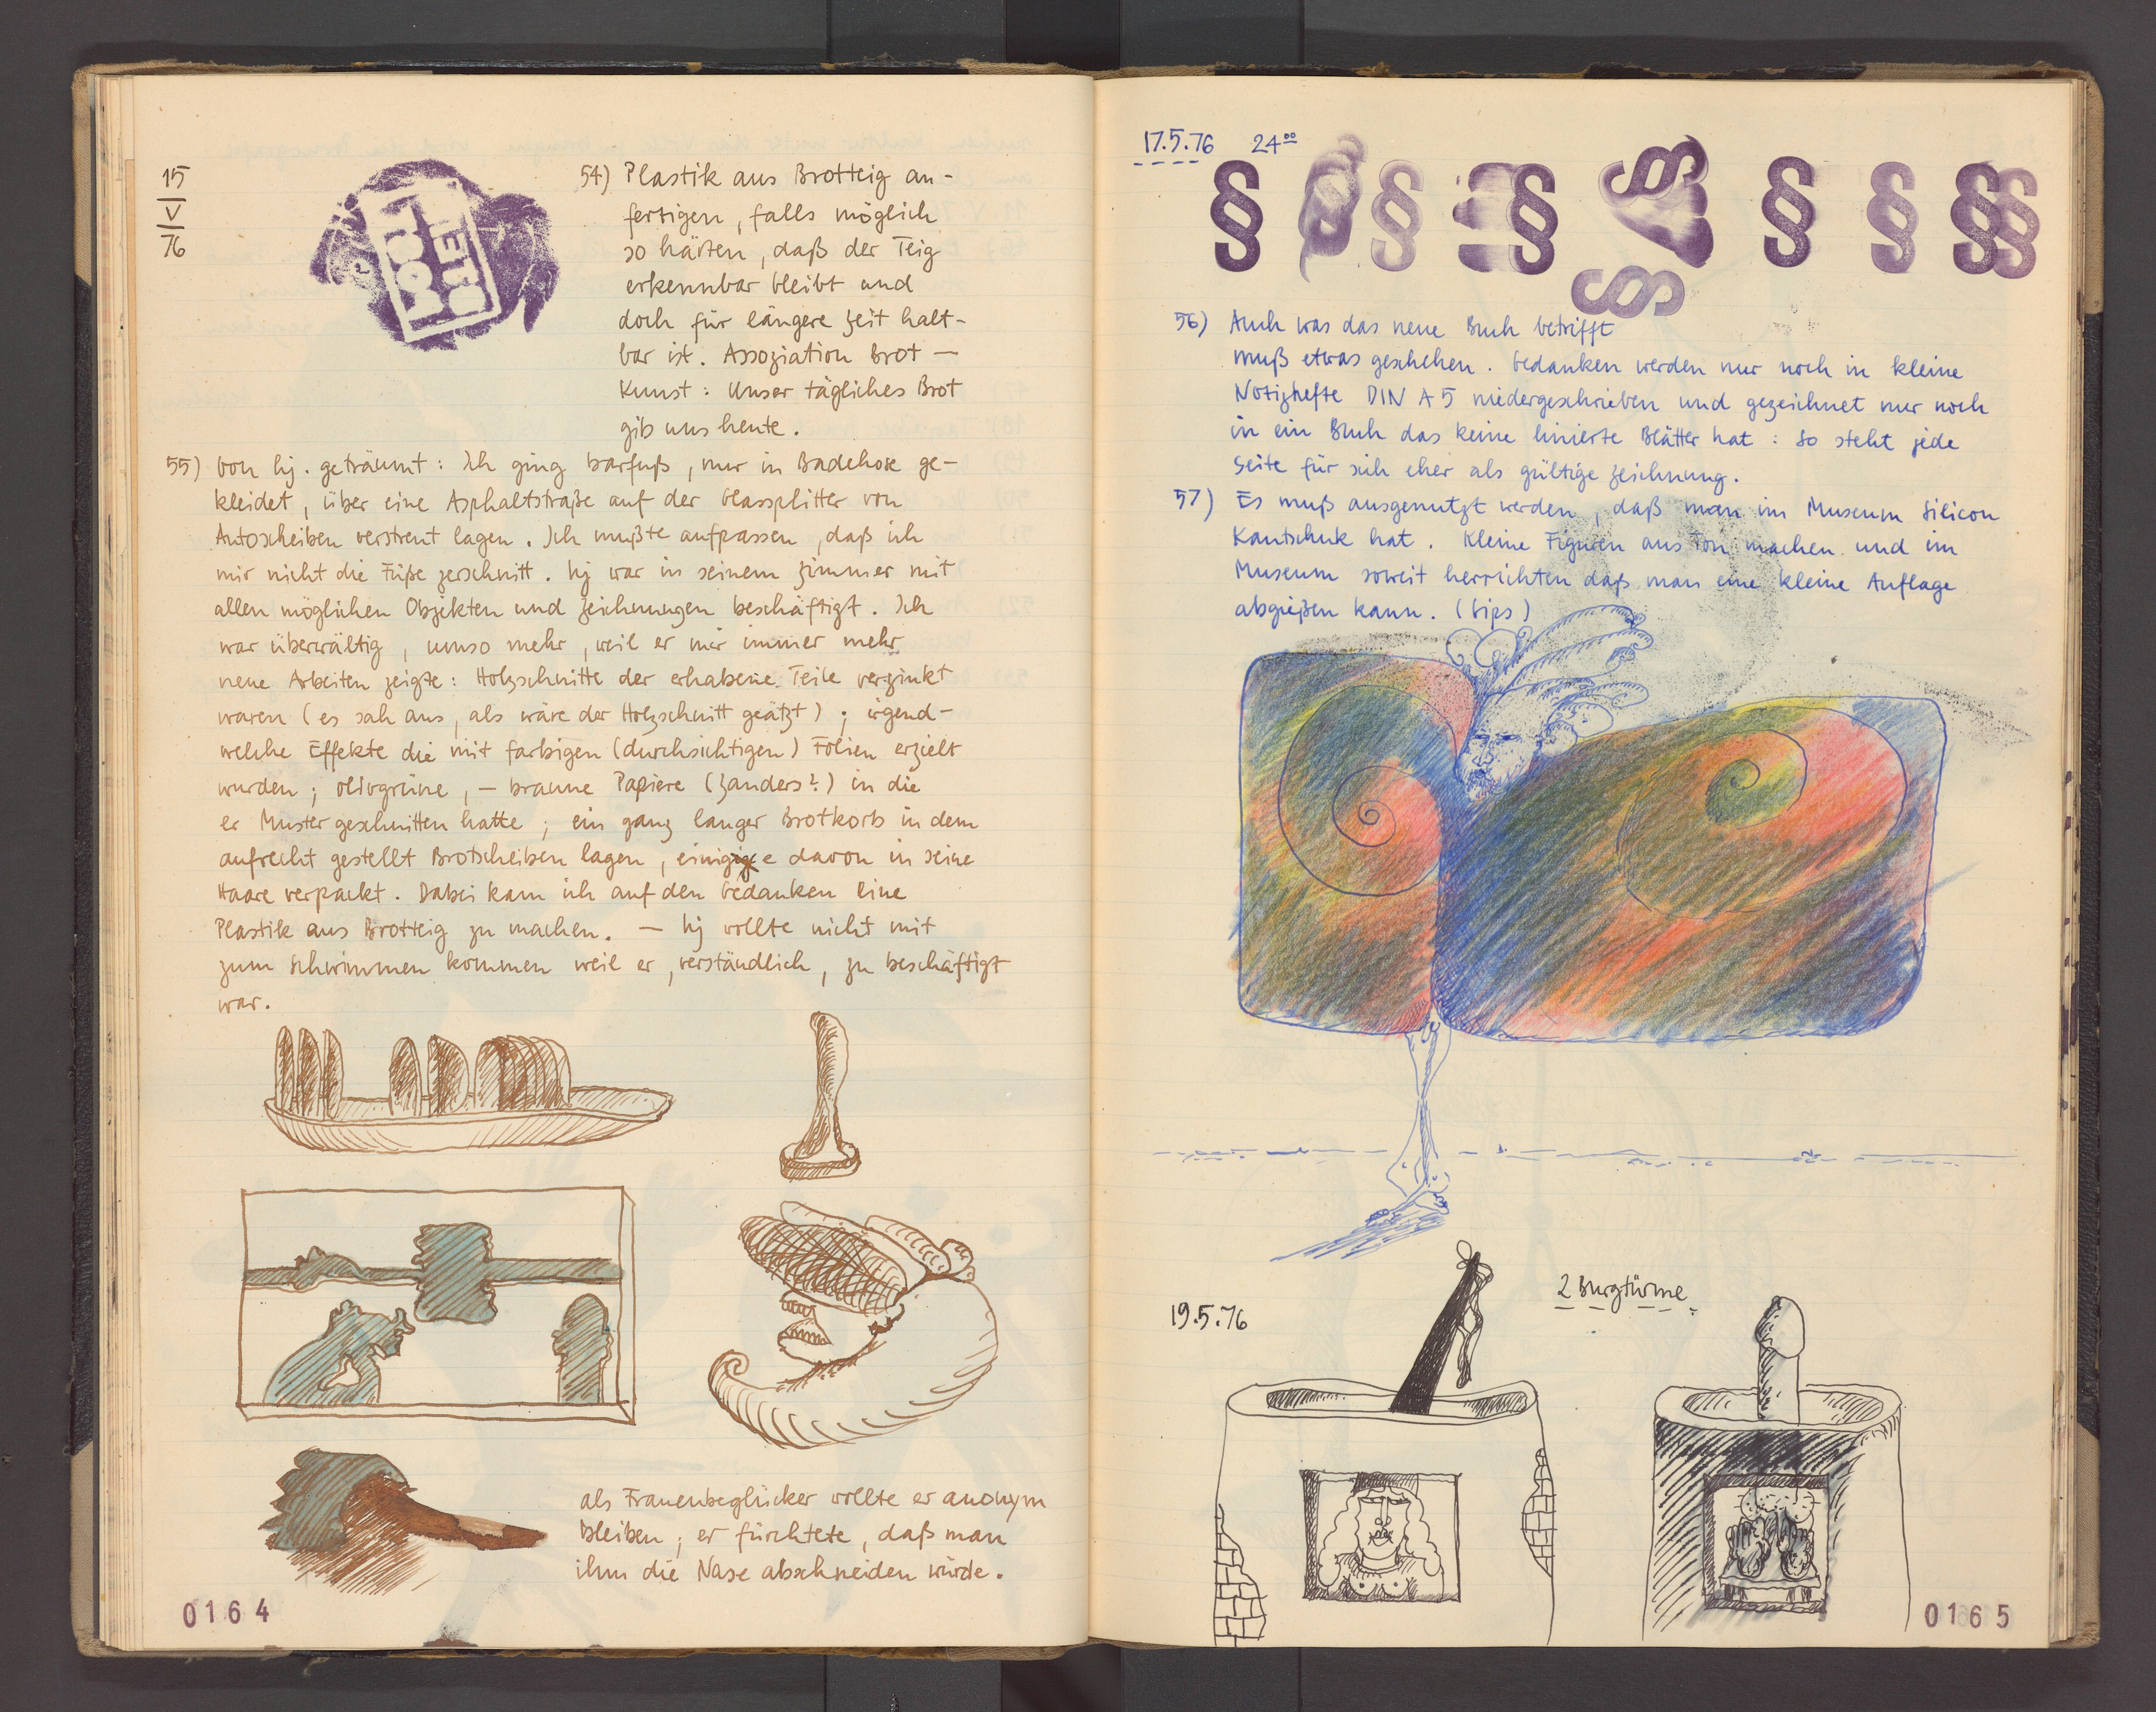 15
V
76
54) Plastik aus Brotteig an-
fertigen, falls möglich
so härten, daß der Teig
erkennbar bleibt und
doch für längere Zeit halt-
bar ist. Assoziation Brot —
Kunst: Unser tägliches Brot
gib uns heute.
55) Von hj. geträumt: Ich ging barfuß, nur in Badehose ge-
kleidet, über eine Asphaltstraße auf der Glassplitter von
Autoscheiben verstreut lagen. Ich mußte aufpassen, daß ich
mir nicht die Füße zerschnitt. hj war in seinem Zimmer mit
allen möglichen Objekten und Zeichnungen beschäftigt. Ich
war überwältig, umso mehr, weil er mir immer mehr
neue Arbeiten zeigte: Holzschnitte der erhabene Teile verzinkt
waren (es sah aus, als wäre der Holzschnitt geätzt); irgend-
welche Effekte die mit farbigen (durchsichtigen) Folien erzielt
wurden; olivgrüne, – braune Papiere (Zanders?) in die
er Muster geschnitten hatte; ein ganz langer Brotkorb in dem
aufrecht gestellt Brotscheiben lagen, einige davon in seine
Haare verpackt. Dabei kam ich auf den Gedanken eine
Plastik aus Brotteig zu machen. — hj wollte nicht mit
zum Schwimmen kommen weil er, verständlich, zu beschäftigt
war.
als Frauenbeglücker wollte er anonym
bleiben; er fürchtete, daß man
ihm die Nase abschneiden würde.
0164
17.5.76 24⁰⁰
§ § § § § § § § §
56) Auch was das neue Buch betrifft
muß etwas geschehen. Gedanken werden nur noch in kleine
Notizhefte DIN A5 niedergeschrieben und gezeichnet nur noch
in ein Buch das keine linierte Blätter hat: So steht jede
Seite für sich eher als gültige Zeichnung.
57) Es muß ausgenutzt werden, daß man im Museum Silicon
Kautschuk hat. Kleine Figuren aus Ton machen und im
Museum soweit herrichten daß man eine kleine Auflage
abgießen kann. (Gips)
19.5.76
2 Burgtürme
0165